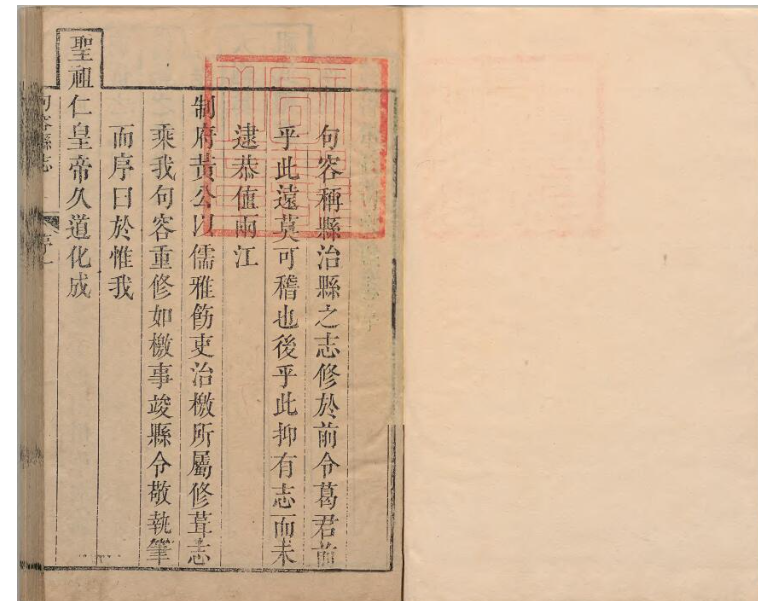 句容稱縣治縣之志修於前令葛君前
乎此遠莫可稽也後乎此抑有志而未
逮恭值兩江
制府黃公以儒雅飭吏治檄所屬修葺志
乘我句容重修如檄事竣縣令敬執筆
而序曰於惟我
聖祖仁皇帝久道化成
句容縣志
序一